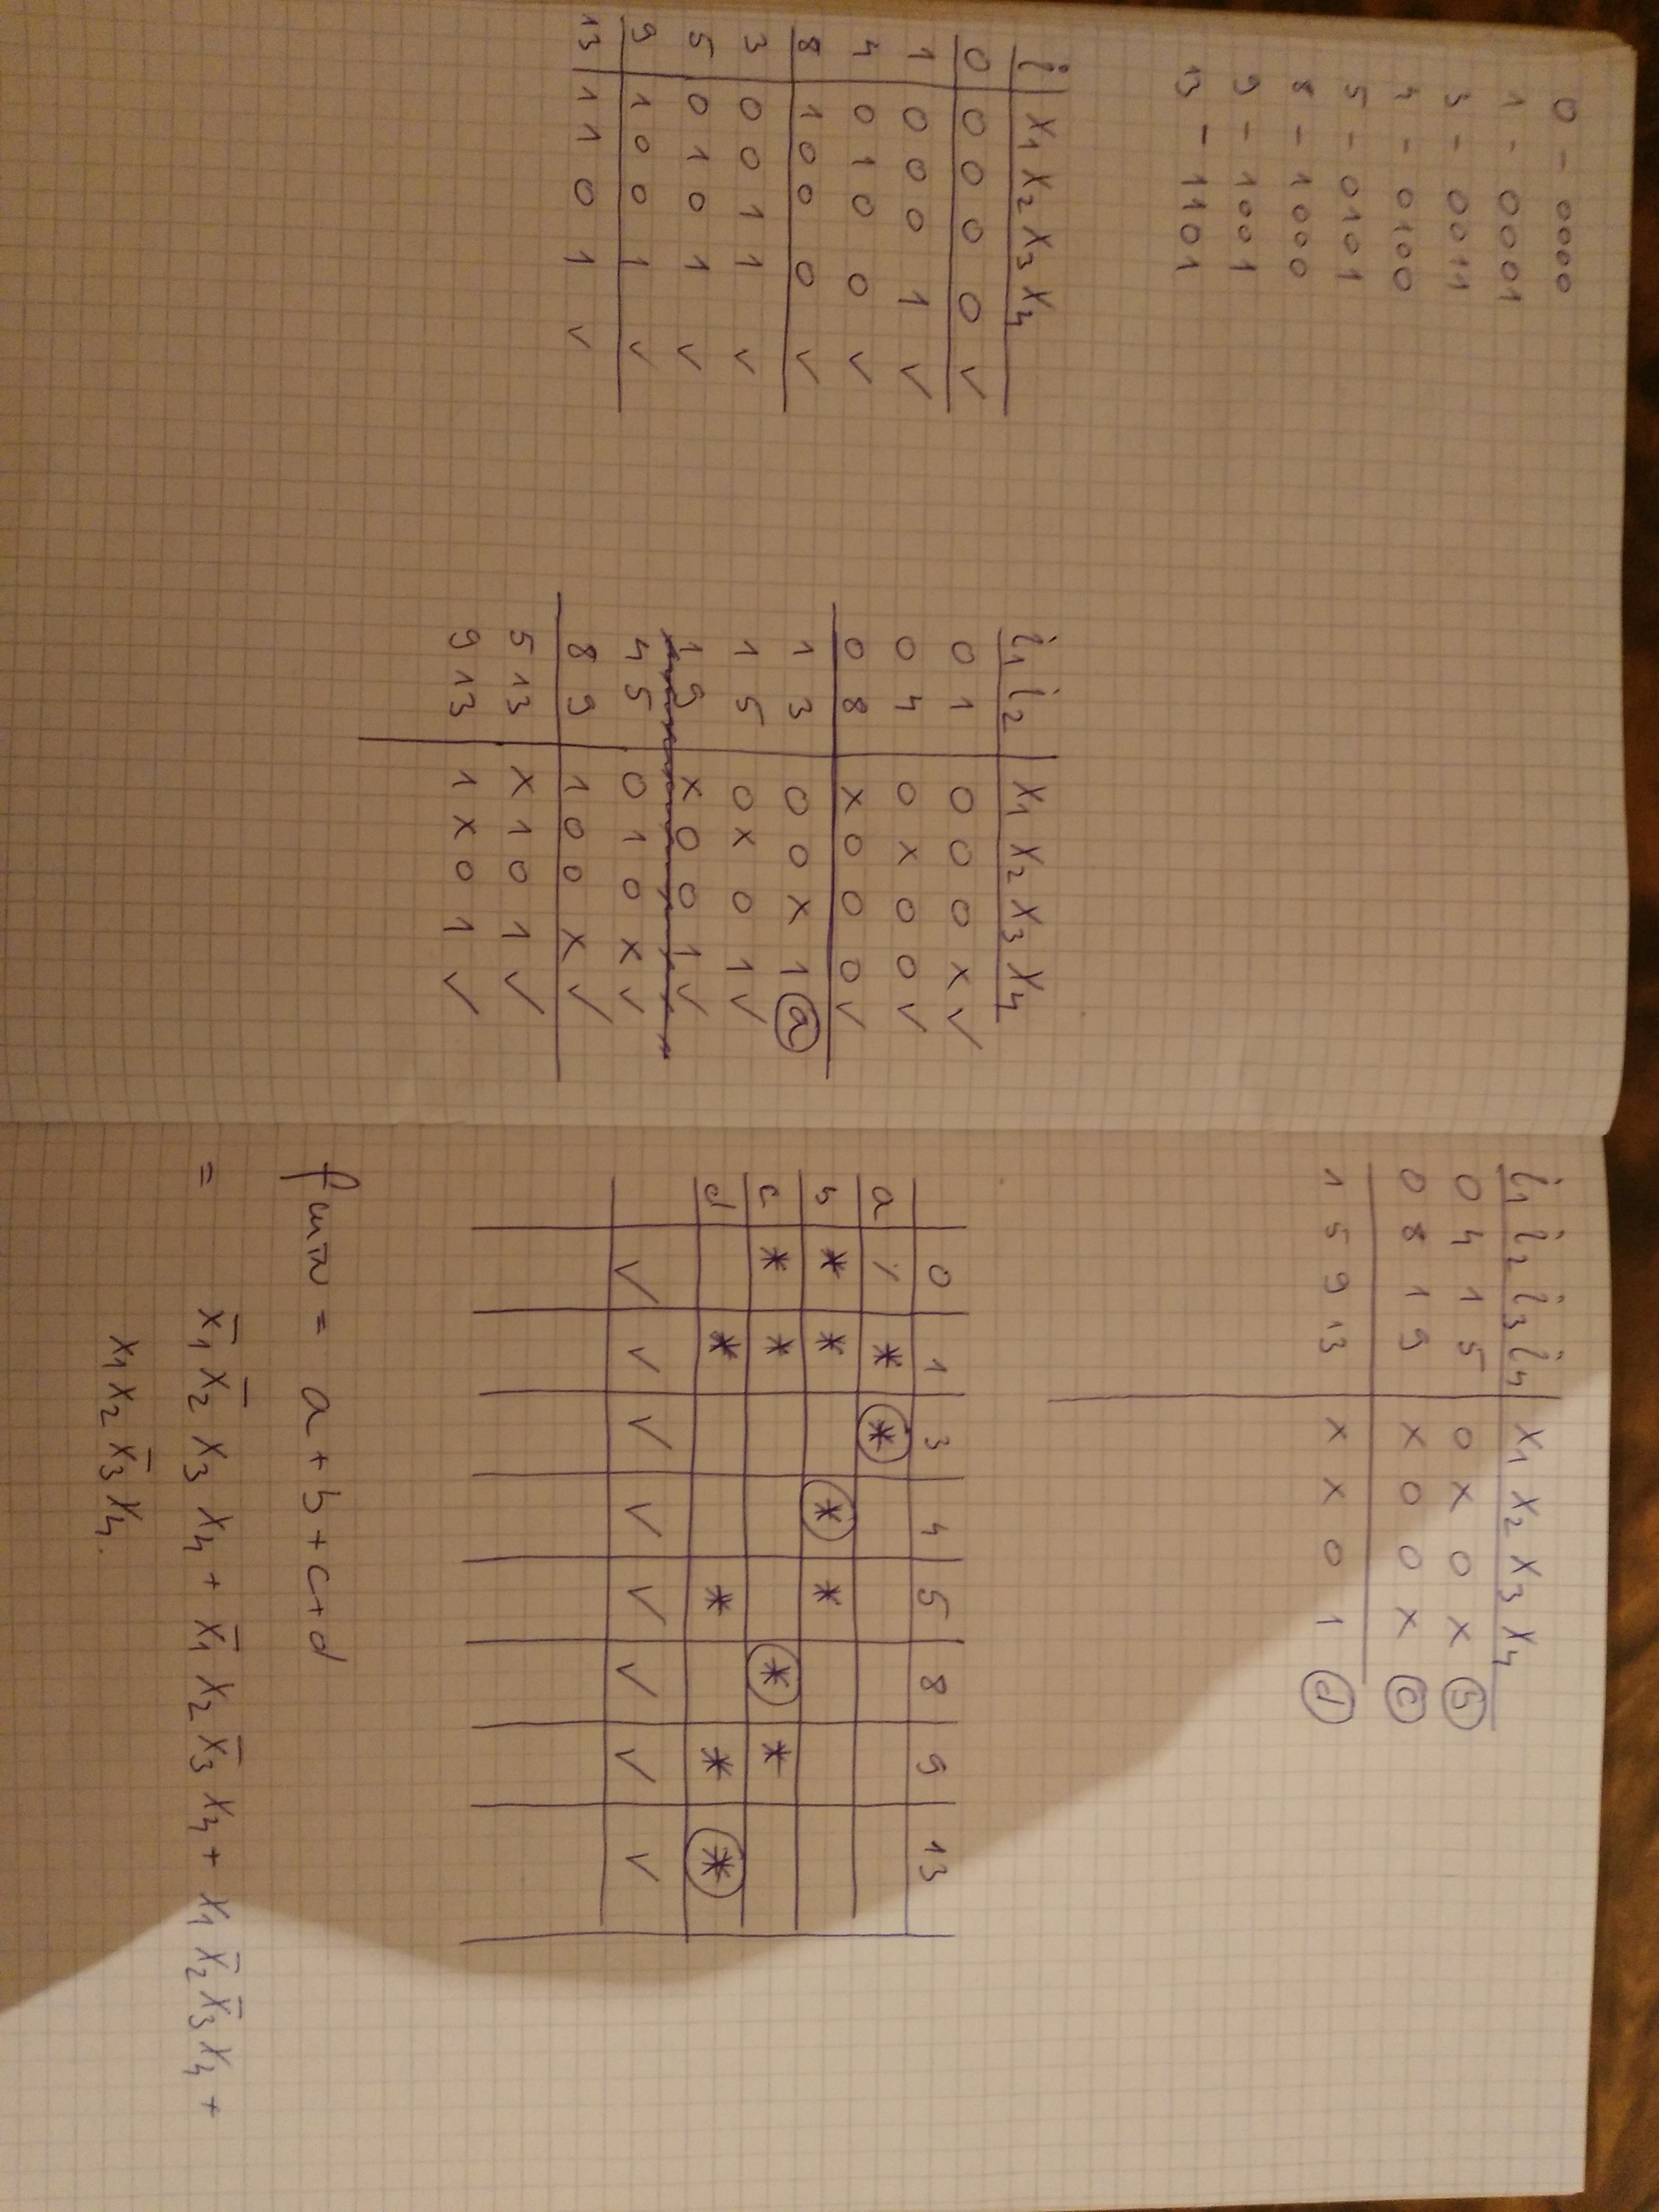 0 - 0000
1 - 0001
3 - 0011
4 - 0100
5 - 0101
8 - 1000
9 - 1001
13 - 1101
i x1 x2 x3 x4
0 0 0 0 0 ✓
1 0 0 0 1 ✓
4 0 1 0 0 ✓
8 1 0 0 0 ✓
3 0 0 1 1 ✓
5 0 1 0 1 ✓
9 1 0 0 1 ✓
13 1 1 0 1 ✓
i1 i2 x1 x2 x3 x4
0 1 0 0 0 x ✓
0 4 0 x 0 0 ✓
0 8 x 0 0 0 ✓
1 3 0 0 x 1 a
1 5 0 x 0 1 ✓
1 9 x 0 0 1 ✓
4 5 0 1 0 x ✓
8 9 1 0 0 x ✓
5 13 x 1 0 1 ✓
9 13 1 x 0 1 ✓
i1 i2 i3 i4 x1 x2 x3 x4
0 4 1 5 0 x 0 x b
0 8 1 9 x 0 0 x c
1 5 9 13 x x 0 1 d
0 1 3 4 5 8 9 13
a * *
b * * * *
c * * * *
d * * * *
✓ ✓ ✓ ✓ ✓ ✓ ✓ ✓
fmin = a + b + c + d
= x̄1 x̄2 x3 x4 + x̄1 x2 x̄3 x4 + x1 x̄2 x̄3 x4 +
x1 x2 x̄3 x4.